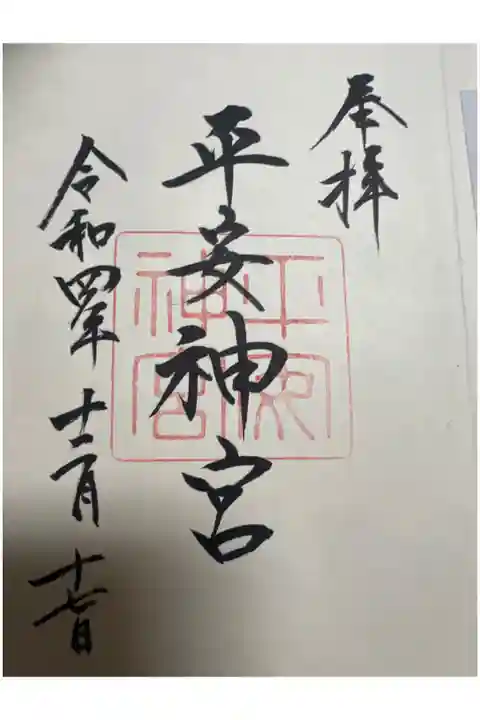 奉拝
平安神宮
令和四年十二月十七日
平安神宮